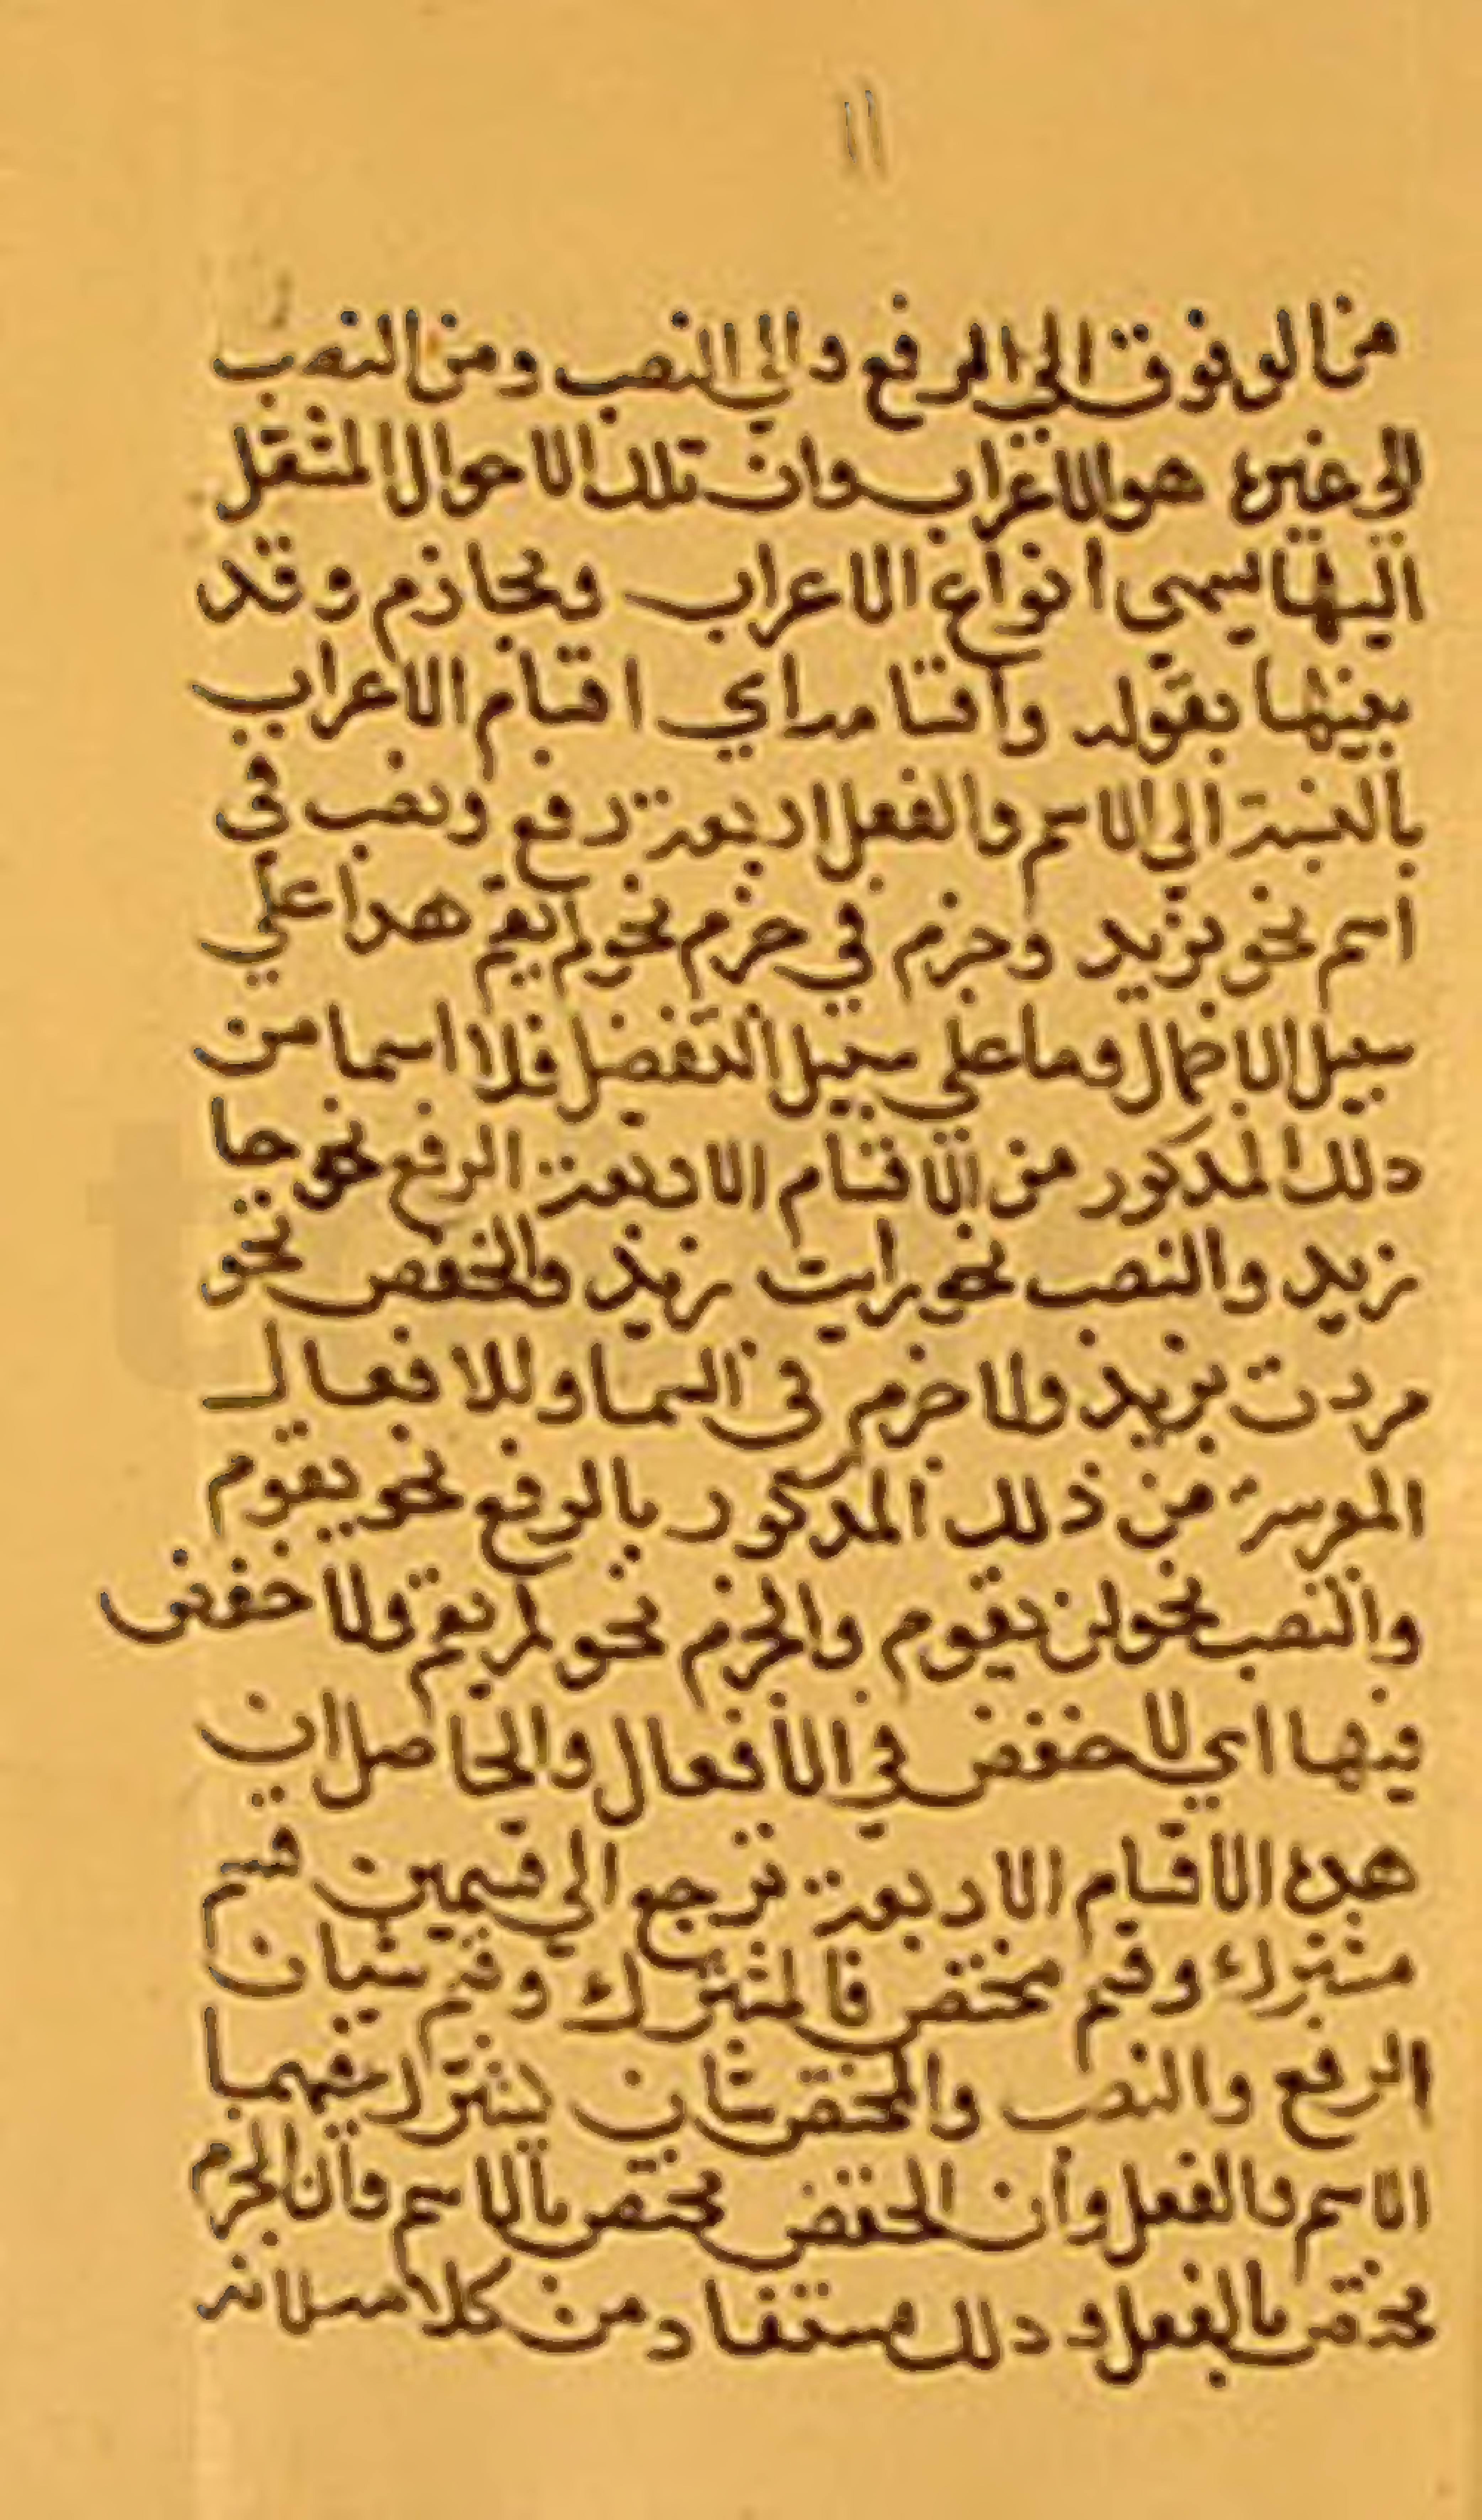 ١١
من الوقوف الي الرفع والي النصب ومن النصب
الي غيره هو الاعراب وان تلك الاحوال المنتقل
اليها يسمي انواع الاعراب ومجازم وقد
بينها بقوله واقسامه اي اقسام الاعراب
بالنسبة الي الاسم والفعل اربعة رفع ونصب في
اسم نحو بزيد وجزم في جزم نحو لم يقم هدا علي
سبيل الاجمال وما علي سبيل التفصل فلا اسما من
دلك المدكور من الاقسام الاربعة الرفع نحو جا
زيد والنصب نحو رايت زيد والخفض نحو
مررت بزيد ولا جزم في السما وللافعال
من ذلك المدكور بالرفع نحو يقوم
والنصب نحو لن يقوم والجزم نحو لم يقم ولا خفض
فيها اي لا خفض في الافعال والحاصل ان
هده الاقسام الاربعة ترجع الي قسمين قسم
مشترك وقسم مختص فالمشترك وقسم شيان
الرفع والنصب والمختص شان يشترك فيهما
الاسم والفعل وان الخفض مختص بالاسم وان الجزم
مختص بالفعل و دلك مستفاد من كلامه لانه